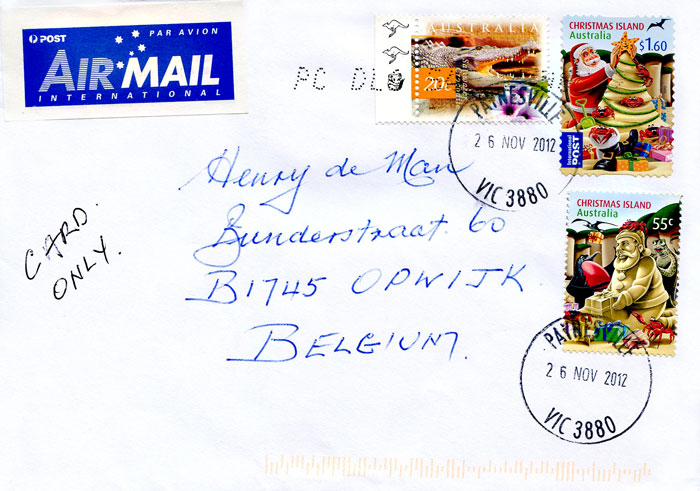 POST PAR AVION
AIR MAIL
INTERNATIONAL
AUSTRALIA
20c
PC DL
CHRISTMAS ISLAND
Australia
$1.60
International
POST
PAYNESVILLE
26 NOV 2012
VIC 3880
CHRISTMAS ISLAND
Australia
55c
PAYNESVILLE
26 NOV 2012
VIC 3880
CARD
ONLY.
Henry de Man
Bunderstraat 60
B1745 OPWIJK
BELGIUM.